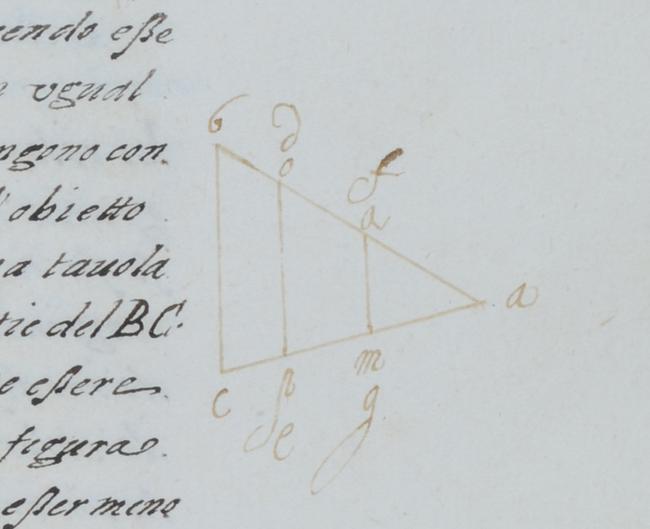 endo eſse
ugual
ngono con
l'obietto
a tauola
tie del BC.
e eſsere
figura
eſser meno
b
d
o
f
a
a
c
p
e
m
g